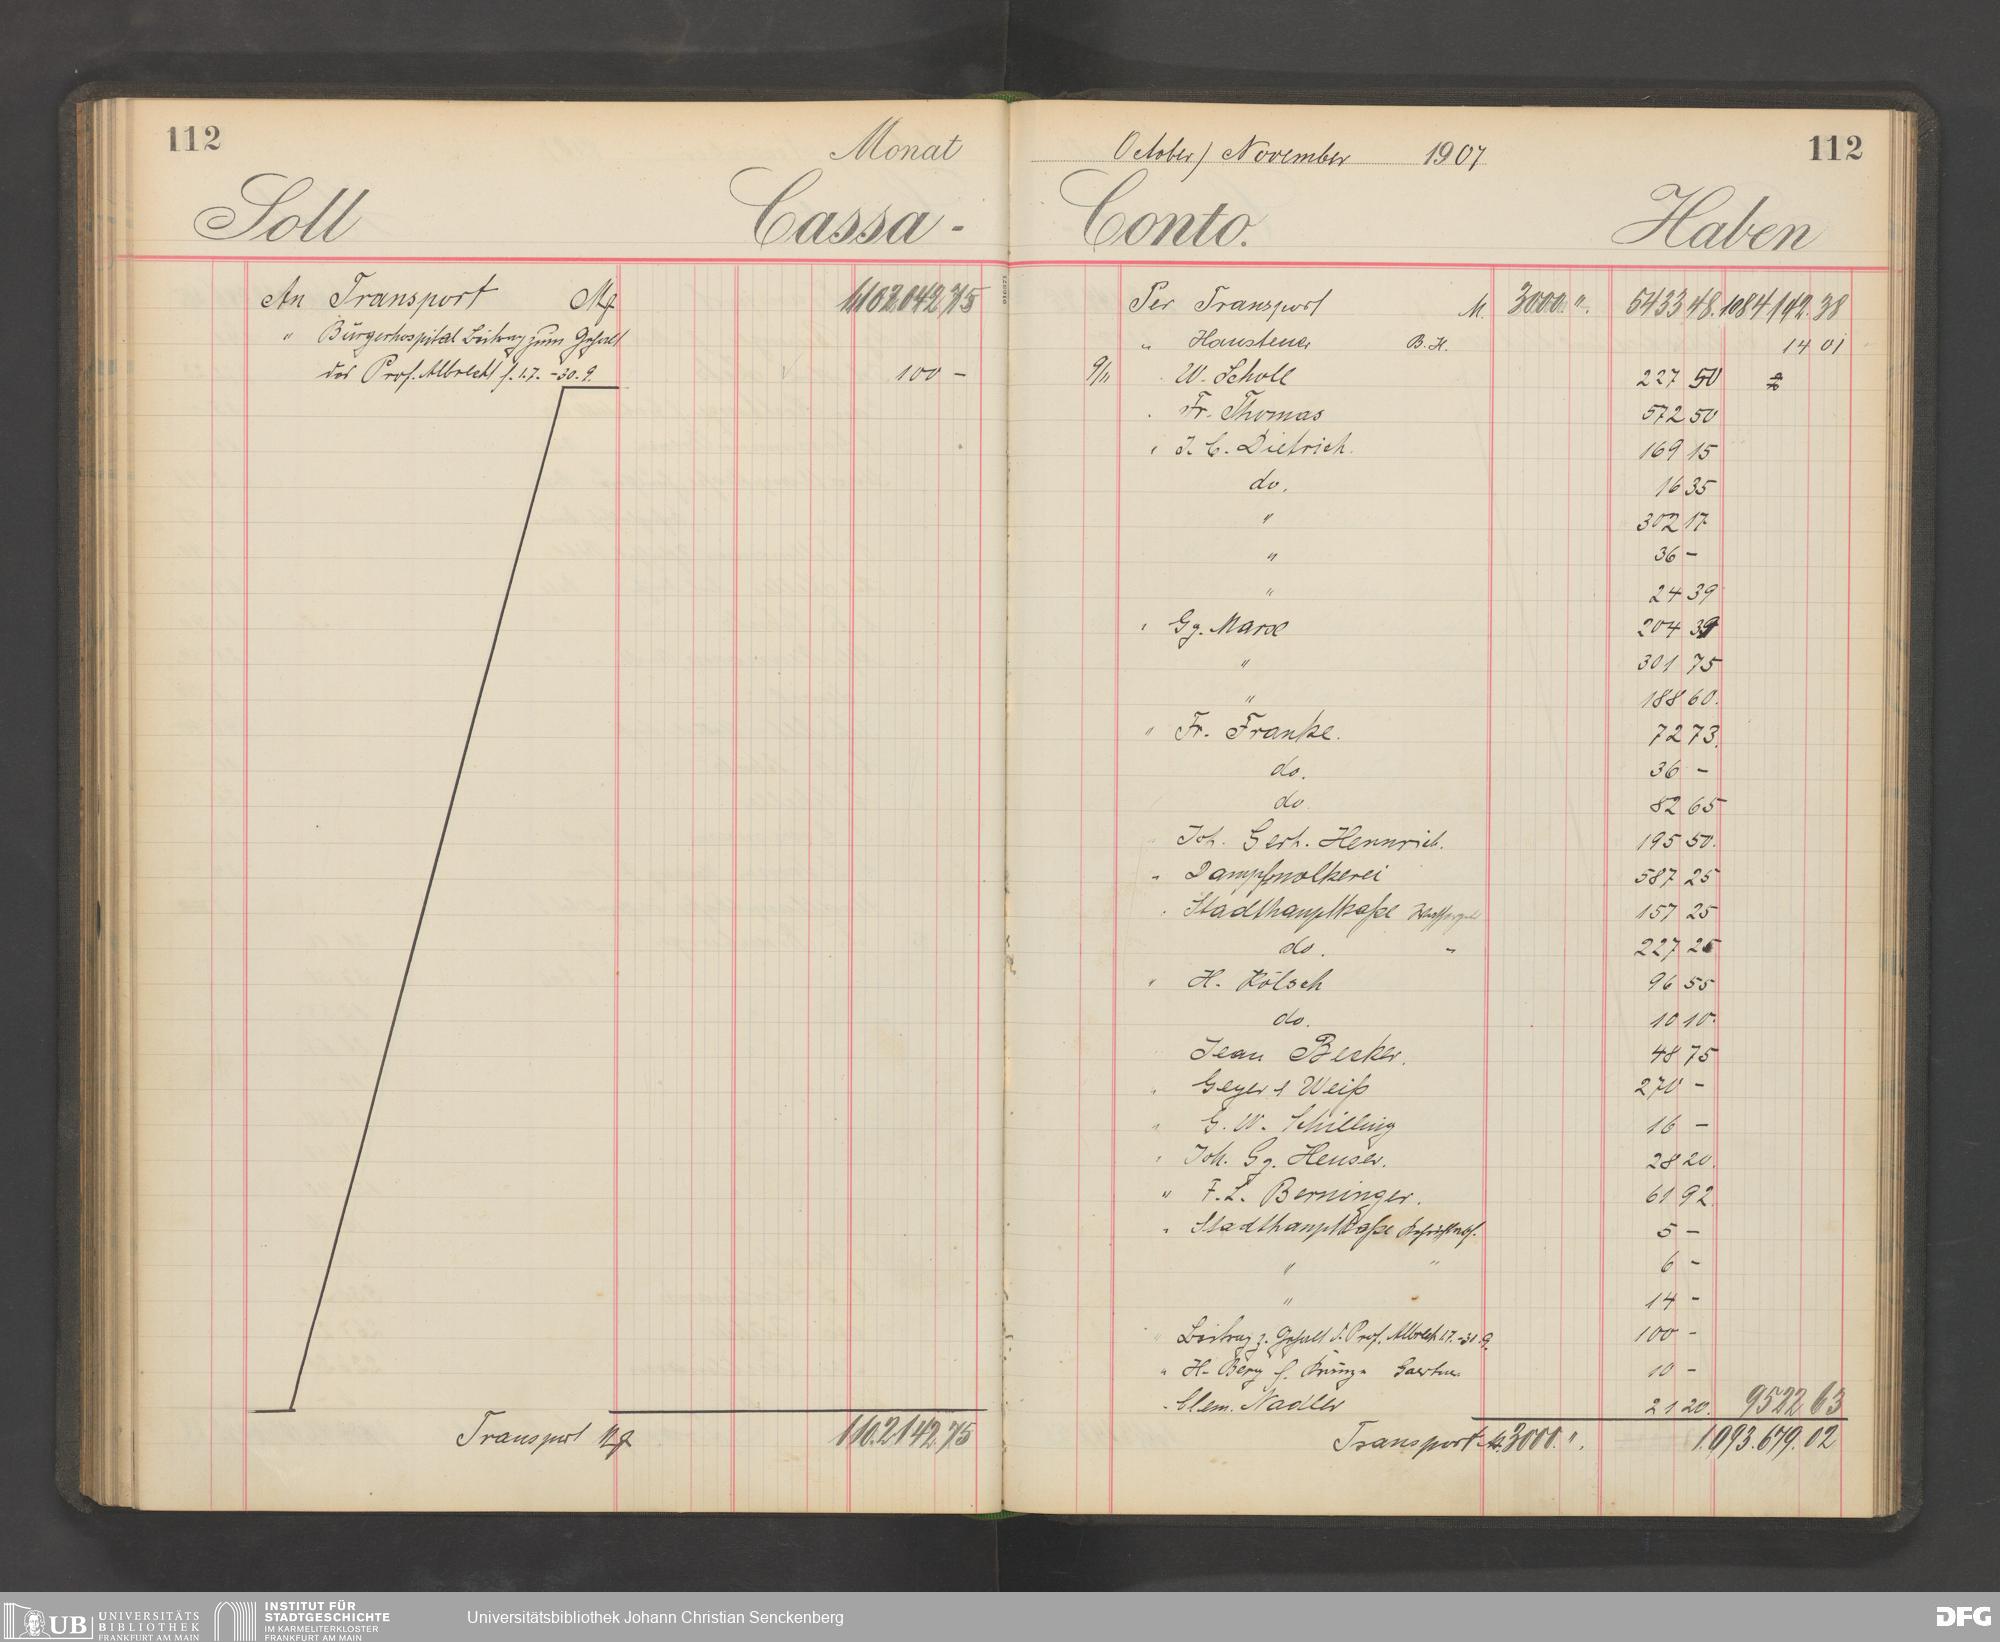 112
Monat
Soll Cassa-
An Transport M
1,102,042.75
" Bürgerhospital Beitrag zum Gehalt
des Prof. Albrecht f. 1.7. - 30.9. 100 -
Transport M 1.102.142.75
October/ November 1907 112
Conto. Haben
Per Transport M. 3000. ". 5433 48. 1084 142.38
" Haussteuer B.H. 14 01
9/11 W. Scholl 227 50
Fr. Thomas 572 50
" J. C. Dietrich. 169 15
do. 16 35
" 302 17
" 36 -
" 24 39
" Gg. Marx 204 39
" 301 75
" 188 60.
" Fr. Franke. 72 73.
do. 36 -
do. 82 65
" Joh. Gerh. Hennrich. 195 50.
" Dampfmolkerei 587 25
" Stadthauptkasse 157 25
do. " 227 25
" H. Kölsch 96 55
do. 10 10.
Jean Becker. 48 75
" Geyer & Weiß 270 -
" G. W. Schilling 16 -
" Joh. Gg. Heuser. 28 20.
" F. L. Berninger. 61 92
" Stadthauptkasse 5 -
" " 6 -
" 14 -
" Beitrag z. Gehalt d. Prof. Albrecht 1.7.-30.9. 100 -
" H. Berg f. Gaertner 10 -
" Clem. Nadler 21 20. 9522 63
Transport M. 3000. ". 1.093.679.02
UB UNIVERSITÄTS
BIBLIOTHEK
FRANKFURT AM MAIN
INSTITUT FÜR
STADTGESCHICHTE
IM KARMELITERKLOSTER
FRANKFURT AM MAIN
Universitätsbibliothek Johann Christian Senckenberg
DFG